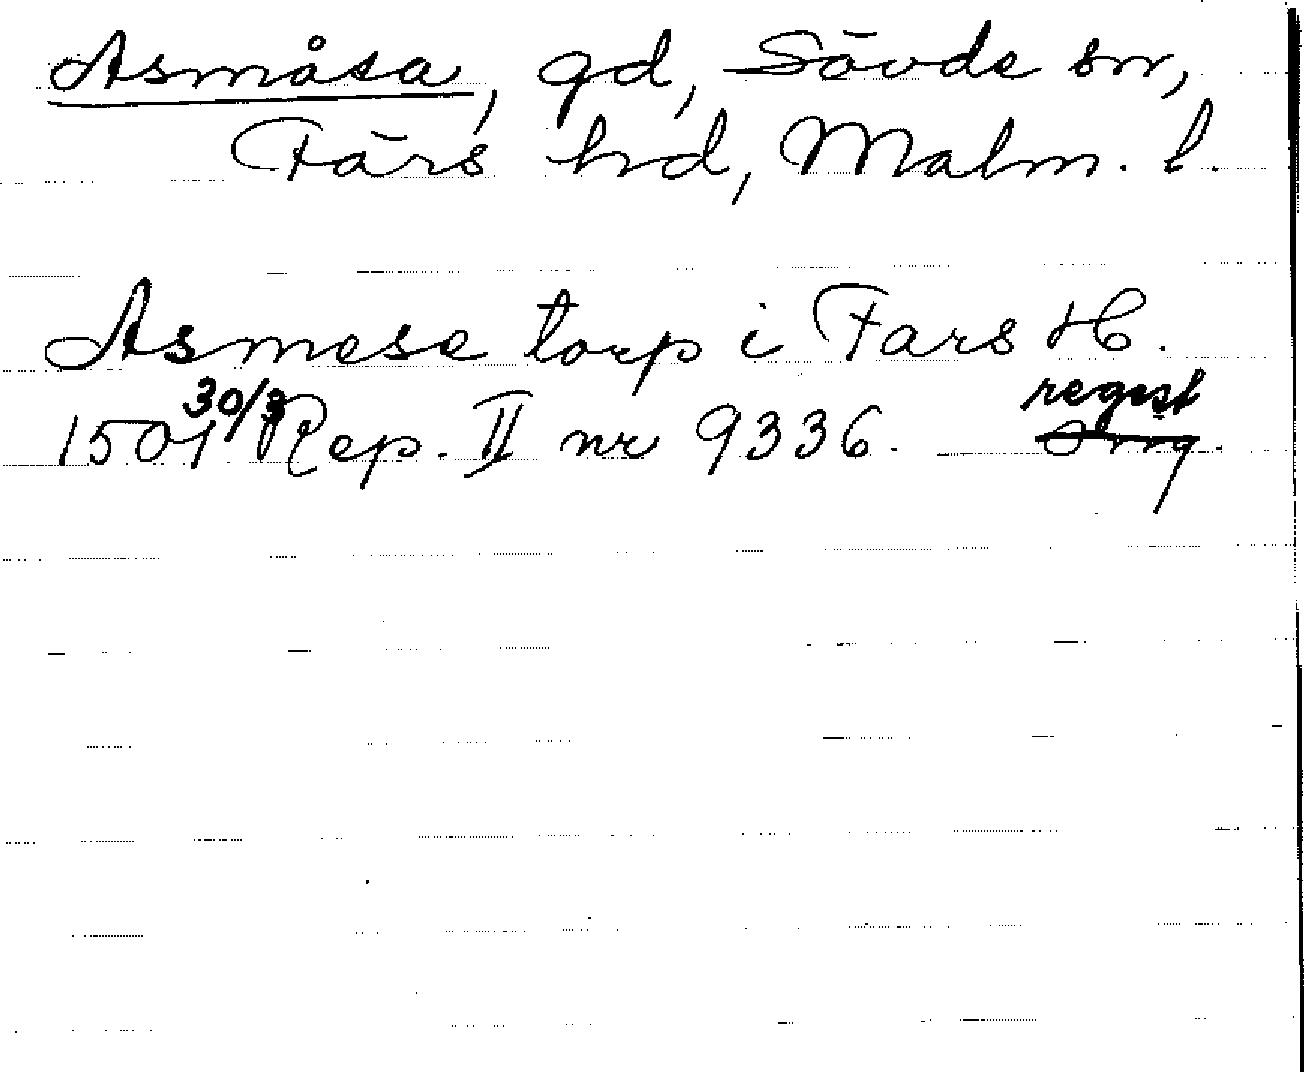 Asmåsa, gd, Sövde sn,
Färs hd, Malm. l.
Asmese torp i Fars H.
1501 30/3 Rep. II nr 9336. regist
Orig.